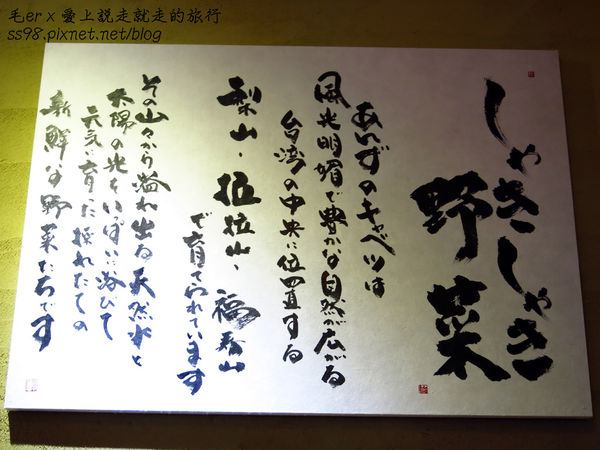 毛er x 愛上說走就走的旅行
ss98.pixnet.net/blog
しゃきしゃき
野菜
あいずのキャベツは
風光明媚で豊かな自然が広がる
台湾の中央に位置する
梨山・拉拉山・福寿山
で育てられています
その山々から溢れ出る天然水と
太陽の光をいっぱいに浴びて
元気に育った採れたての
新鮮な野菜たちです